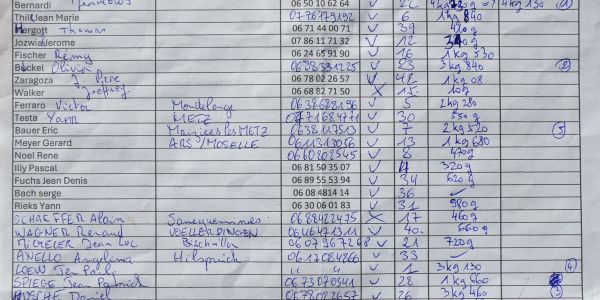 Bernardi 06 50 10 62 64 ✓ 22 4 kg 130 ①
Thil Jean Marie 0778779192 ✓ 6 1 kg 840
Hergott Thomas 06 71 44 00 71 ✓ 39 420g
Jozwiak Jerome 07 86 11 71 32 ✓ 12
Fischer Rémy 06 24 65 91 90 ✓ 16 1 kg 530
Bückel Olivier ✓ 23 3 kg 840 ②
Zaragoza J. Pire 06 78 02 26 57 ✓ 48 1 kg 08
Walker Jeoffrey 06 68 82 71 50 X 15
Ferraro Victor Mondelange 0638688196 ✓ 5 2 kg 280
Testa Yann METZ ✓ 30 550g
Bauer Eric METZ 0638117513 ✓ 7 2 kg 520 ⑤
Meyer Gerard ARS s/MOSELLE 0611313056 ✓ 13 1 kg 680
Noel Rene 0660802545 ✓ 8 470g
Illy Pascal 06 81 50 35 07 ✓ 4 320g
Fuchs Jean Denis 06 89 55 53 94 ✓ 34 620g
Bach serge 06 08 4814 14 ✓ 36 ✓
Rieks Yann 06 30 06 01 83 ✓ 31 980g
SCHAEFFER Alain Sarreguemines 0688422475 X 17 460g
WAGNER Renaud VOELLERDINGEN 0646471311 ✓ 40 660g
Jean Luc Bischwiller 0607967268 ✓ 21 720g
ANELLO Angelina Hilsprich 0617084266 ✓ 33 ✓
LOEW " " ✓ 1 3 kg 130 ④
SPIEGE Jean Patrick 0673070341 ✓ 28 1 kg 660
Daniel 0678082657 ✓ 26 3 kg 460 ③